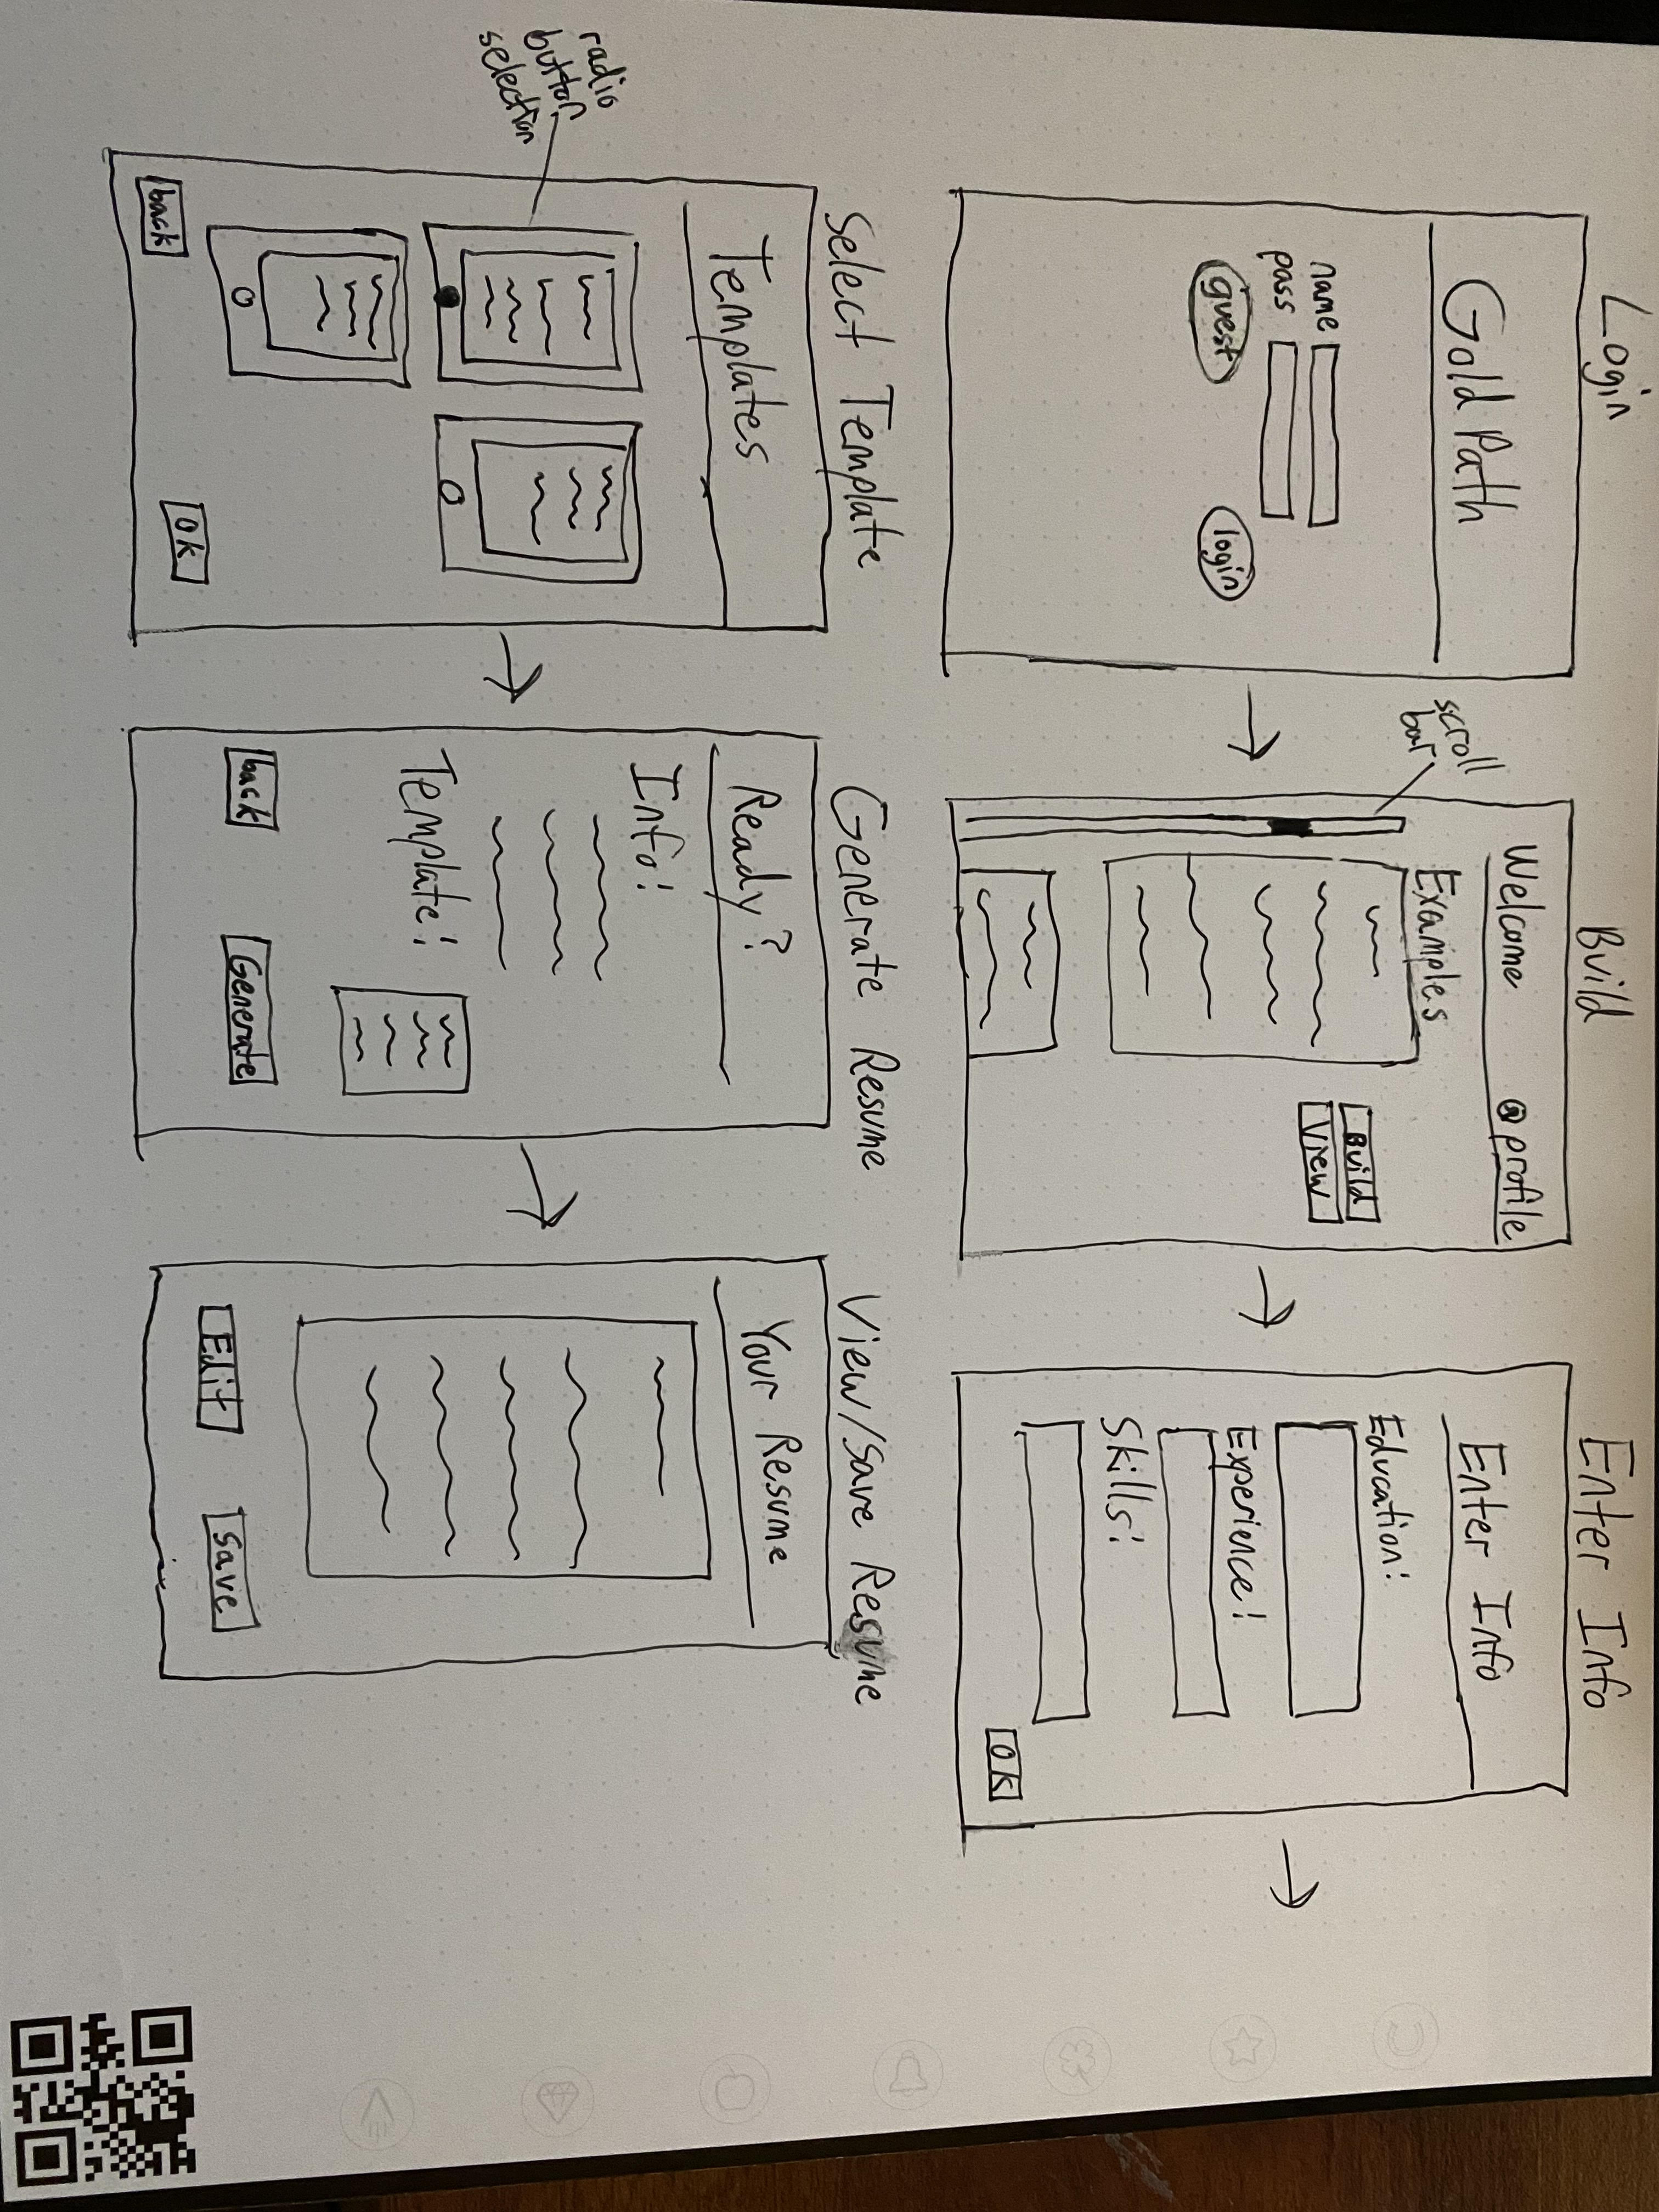 Login
Gold Path
name
pass
guest
login
Build
scroll
bar
Welcome
@profile
Examples
Build
View
Enter Info
Enter Info
Education:
Experience:
Skills:
OK
Select Template
Templates
radio
button
selection
back
OK
Generate Resume
Ready?
Info:
Template:
back
Generate
View/Save Resume
Your Resume
Edit
Save